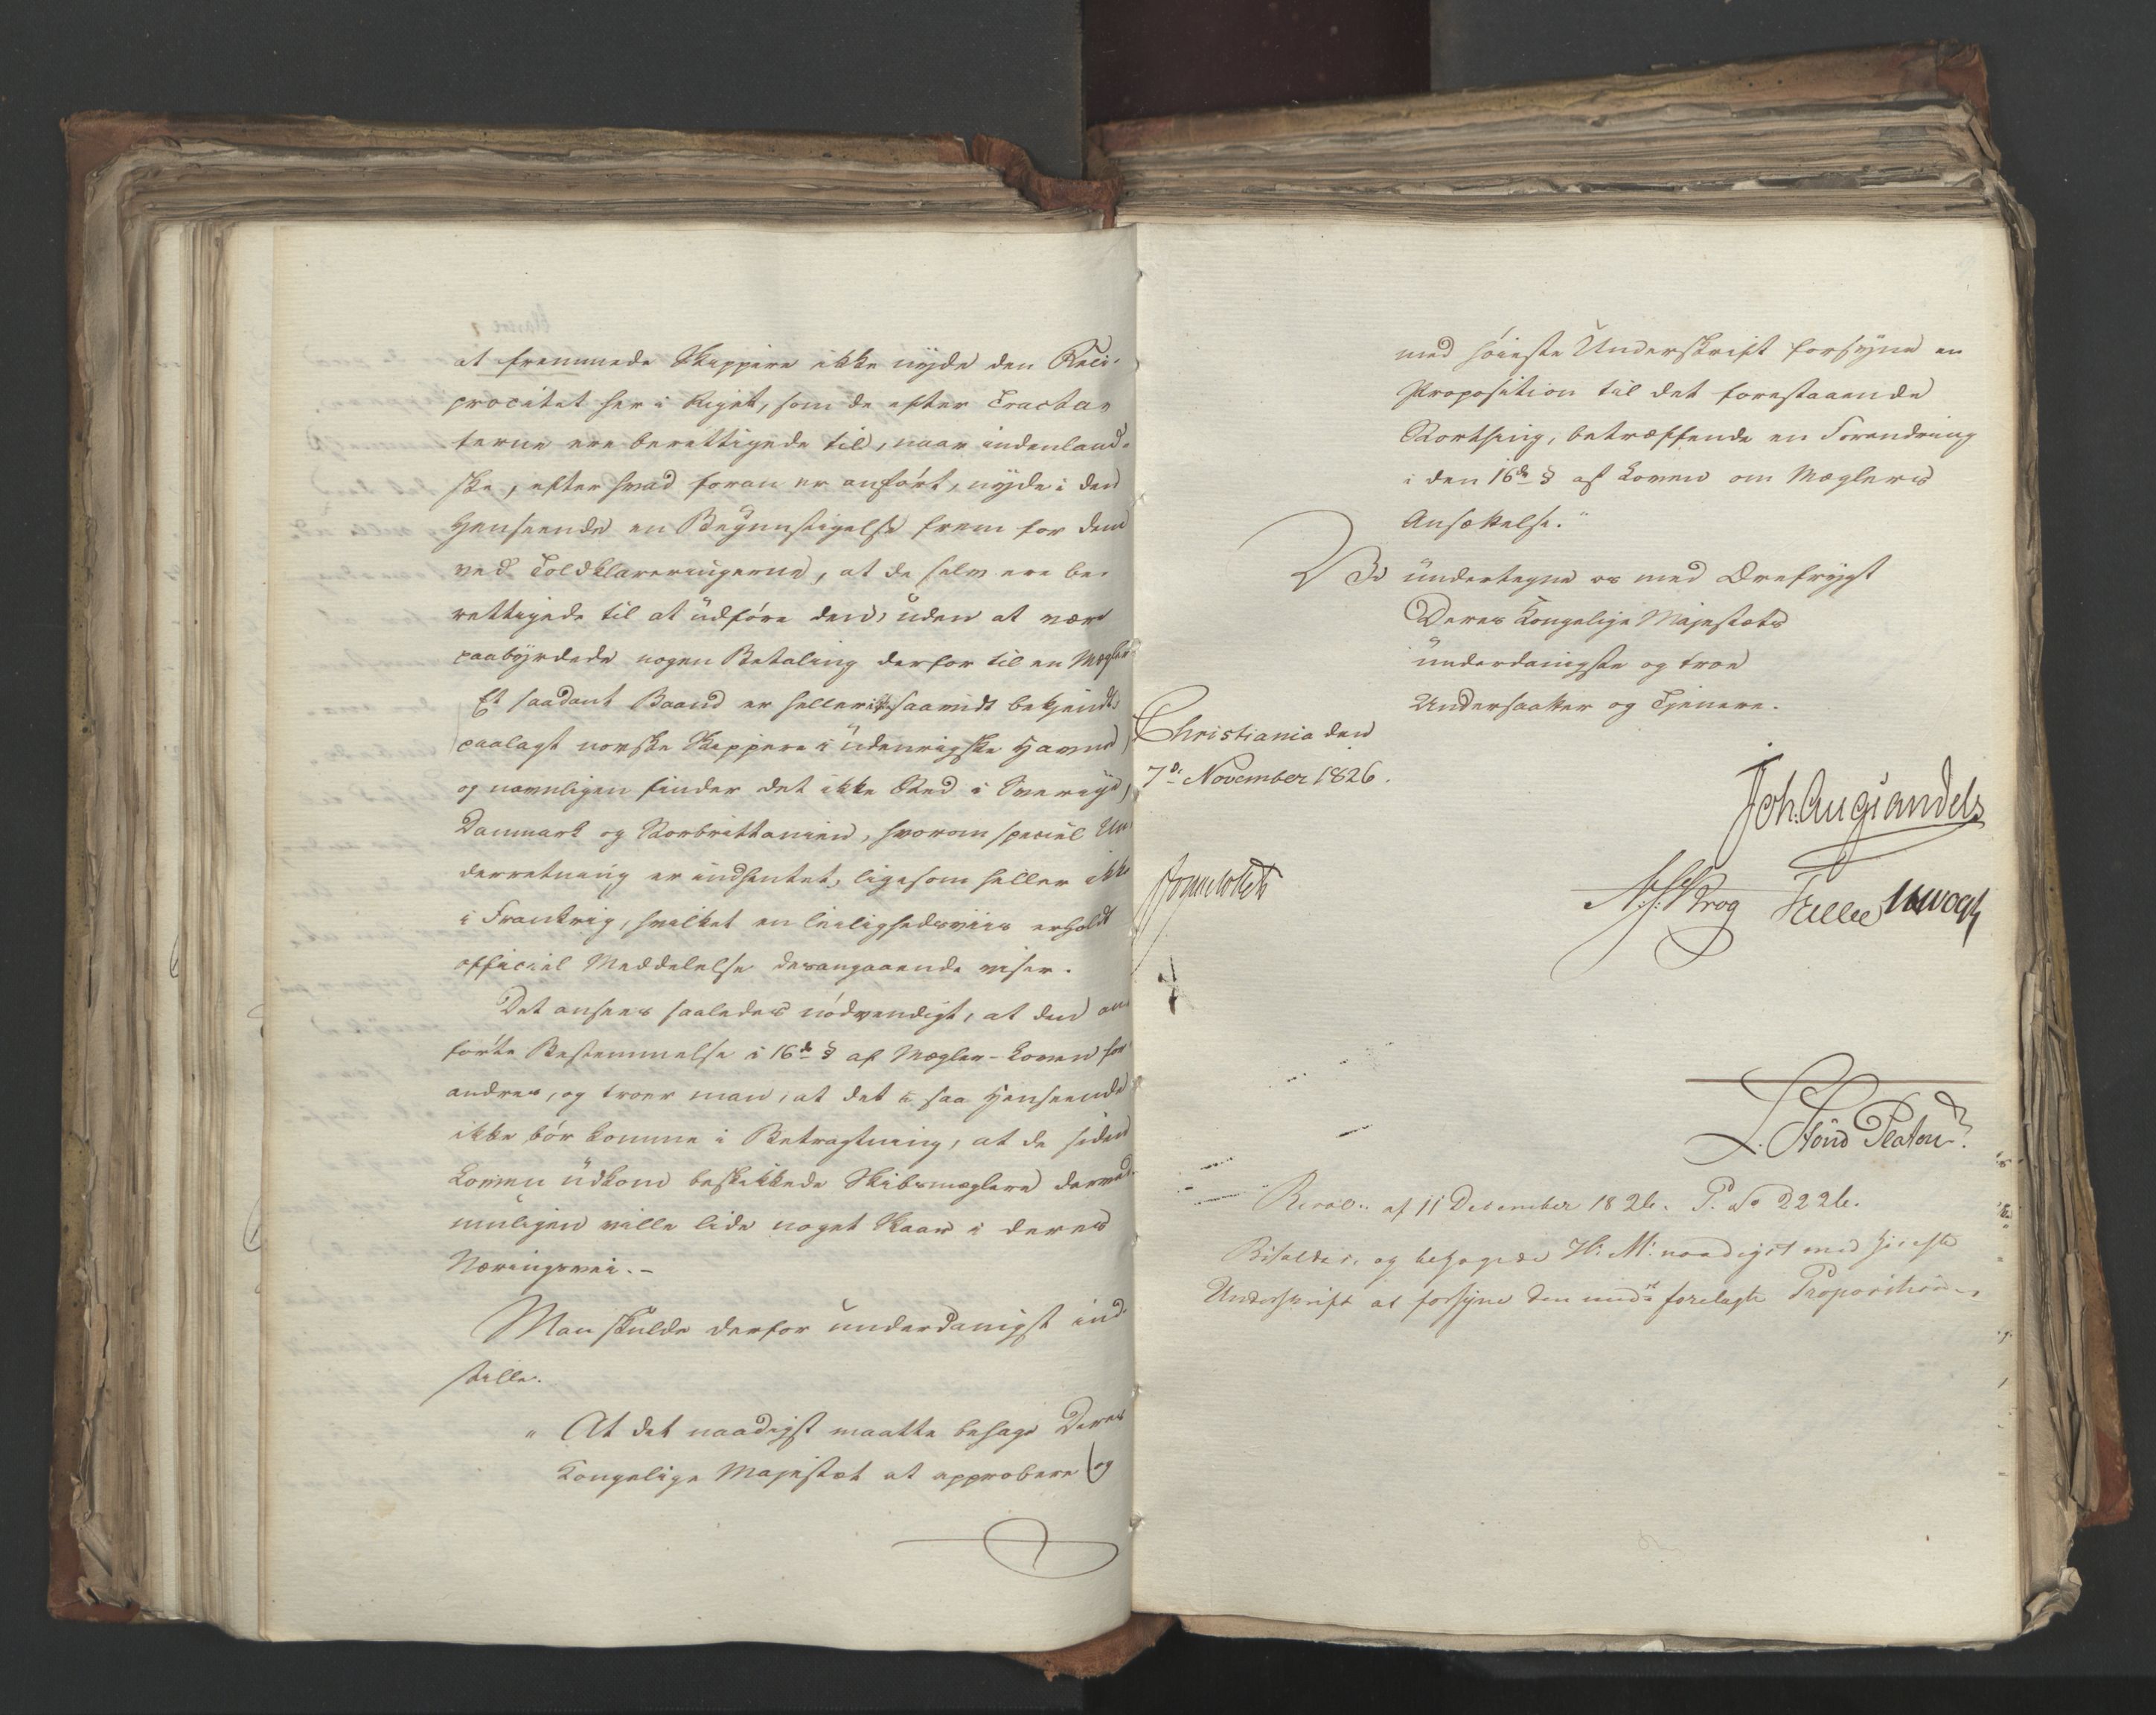 at fremmede Skippere ikke nyde den Reci-
procitet her i Riget, som de efter Tracta-
terne ere berettigede til, naar indenland-
ske, efter hvad foran er anført, nyde i den
Henseende en Begunstigelse frem for dem
ved Toldklareringerne, at de selv ere be-
rettigede til at udføre den, uden at være
paabyrdede nogen Betaling derfor til en Mægler
Et saadant Baand er heller ikke saavidt bekjendt,
paalagt norske Skippere i udenrigske Havne,
og navnligen finder det ikke Sted i Sverige,
Danmark og Storbrittanien, hvorom speciel Un-
derretning er indhentet, ligesom heller ikke
i Frankrig, hvilket en leilighedsviis erholdt
officiel Meddelelse desangaaende viser.
Det ansees saaledes nødvendigt, at den an-
førte Bestemmelse i 16de § af Mægler-Loven for-
andres, og troer man, at det i saa Henseende
ikke bør komme i Betragtning, at de siden
Loven udkom beskikkede Skibsmæglere derved
muligen ville lide noget Skaar i deres
Næringsvei.-
Man skulde derfor underdanigst ind-
stille.
" At det naadigst maatte behage Deres
Kongelige Majestæt at approbere og
med høieste Underskrift forsyne en
Proposition til det forestaaende
Storthing, betræffende en Forandring
i den 16de § af Loven om Mæglers
Ansættelse."
Vi undertegne os med Ærefrygt
Deres Kongelige Majestæts
underdanigste og troe
Undersaatter og Tjenere.
Christiania den
7de November 1826.
Joh. Aug. Sandels
Krog
L. Stoud Platou
Resol: af 11 December 1826. P. No 2226.
Bifaldes, og behagede H: M: naadigst med høieste
Underskrift at forsyne den forelagte Proposition.